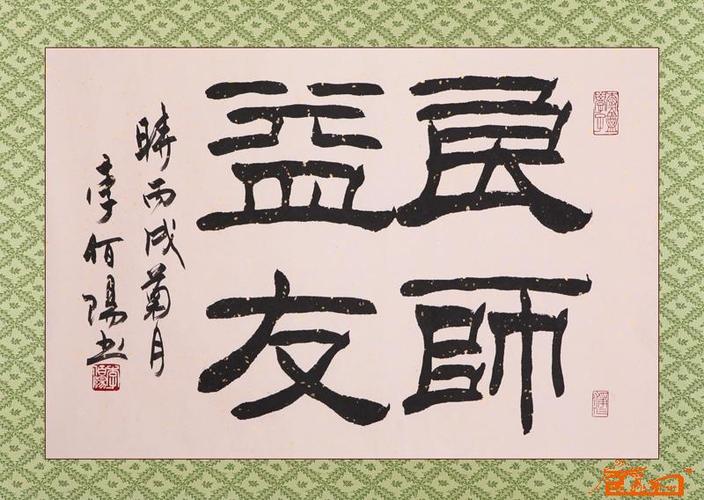 良師
益友
時丙戌菊月
李佰陽書